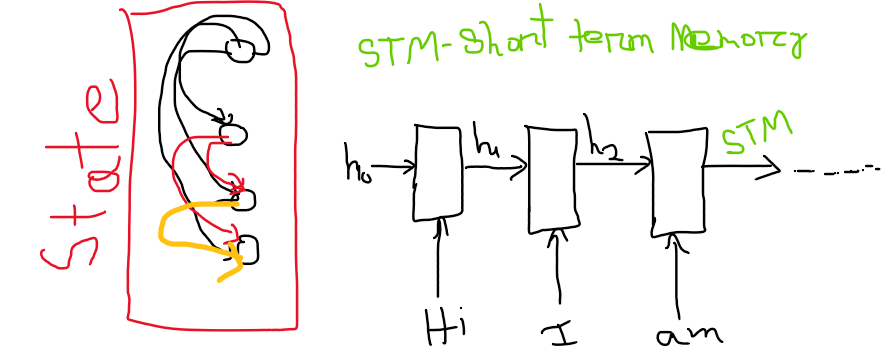 State
STM-Short term Memory
h₀ h₁ h₂ STM
Hi I am